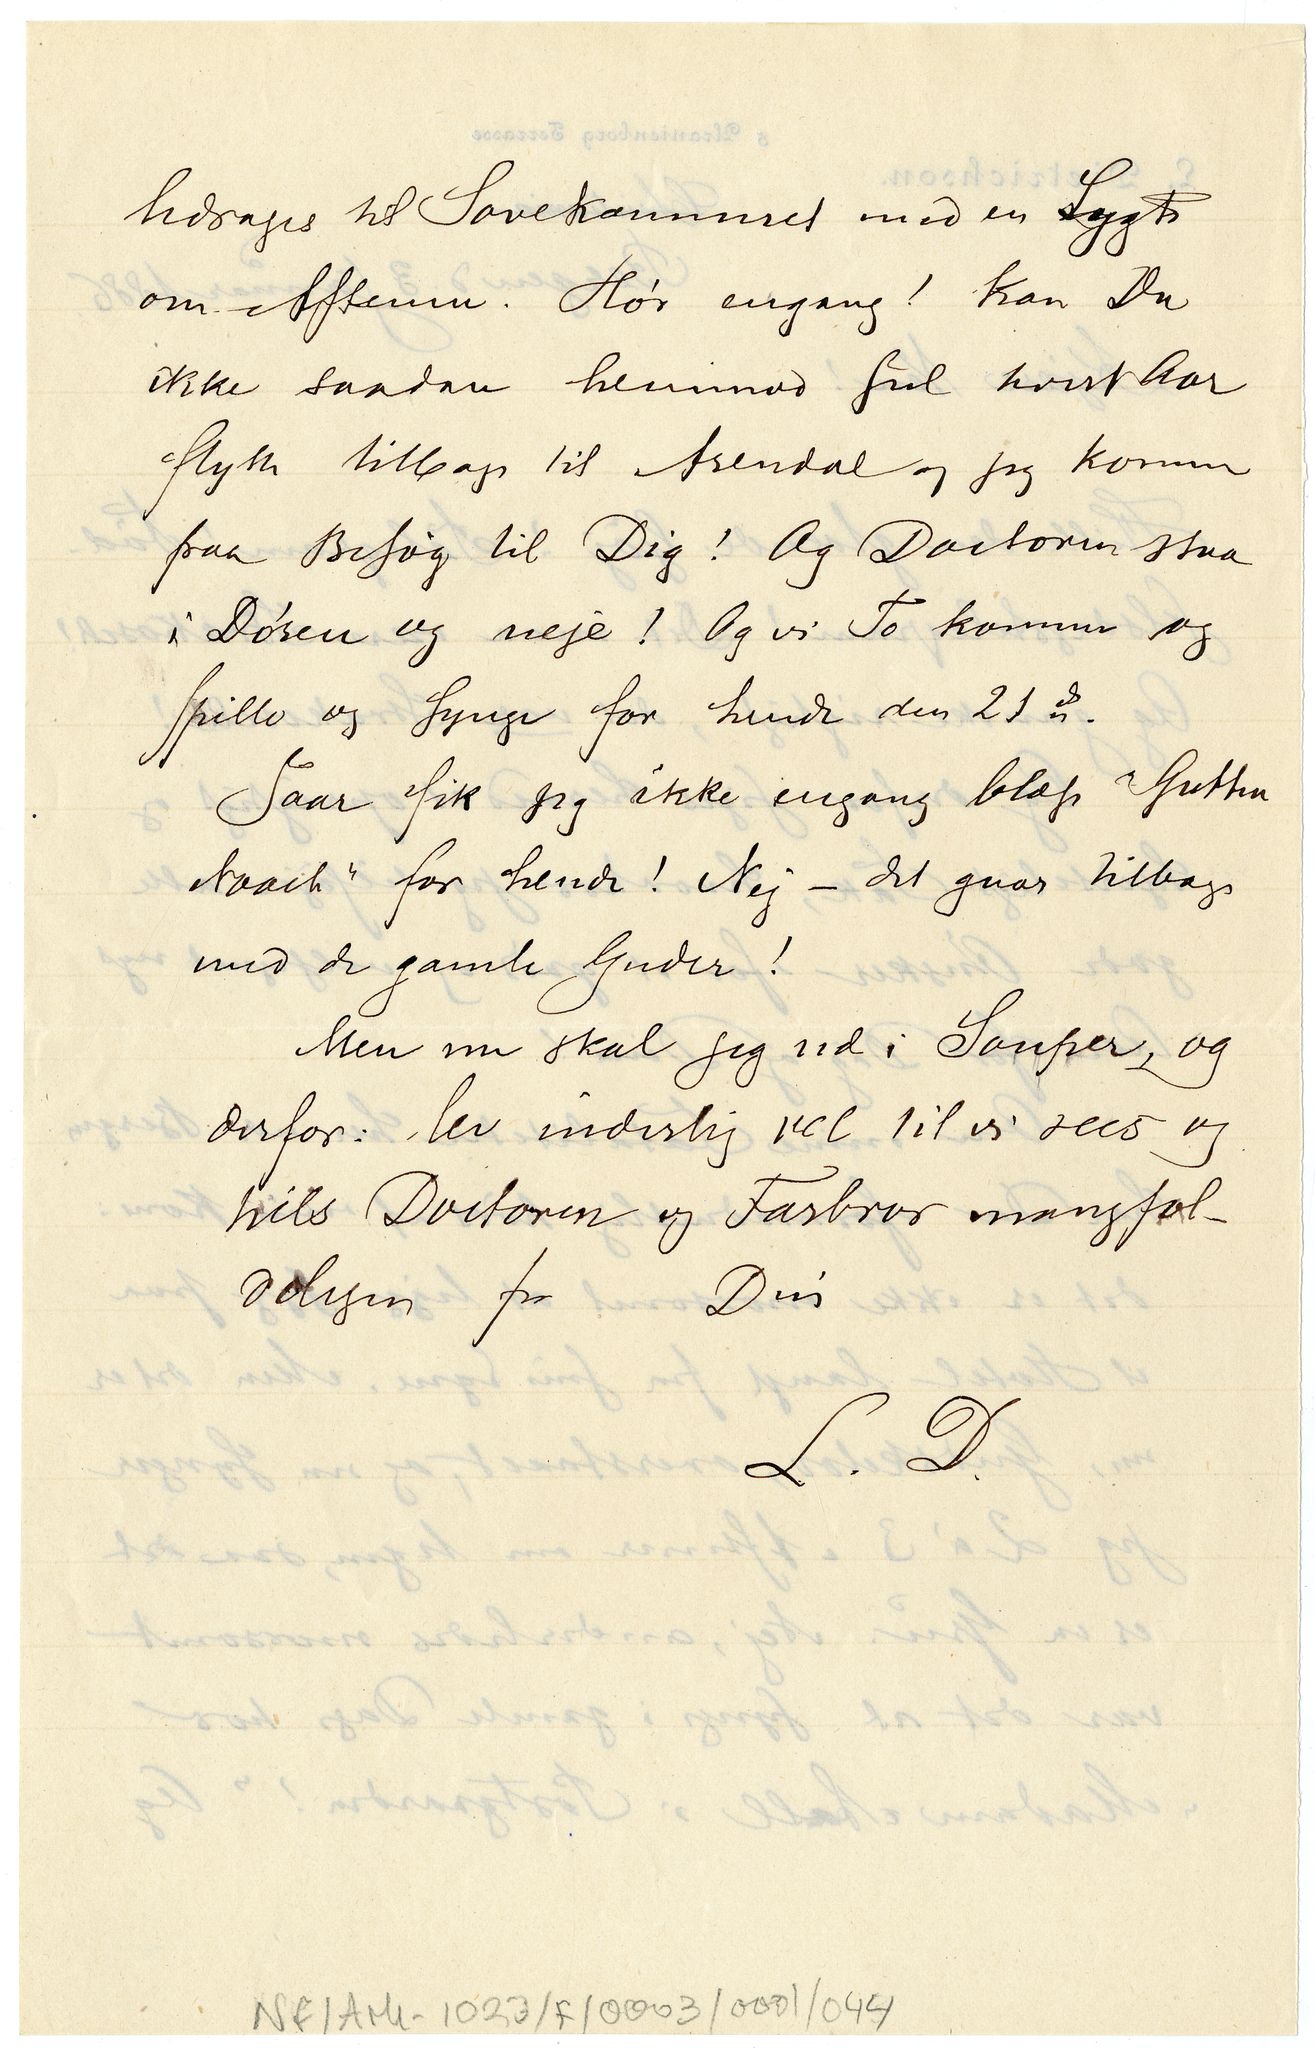 ledsages til Sovekammeret med en Lygte
om Aftenen. Hør engang! kan Du
ikke saadan henimod Jul hvert Aar
flytte tilbage til Arendal og jeg komme
paa Besøg til Dig! Og Doctoren staa
i Døren og neje! Og vi To komme og
spille og synge for hende den 21 de.
Iaar fik jeg ikke engang blæse "Gutten
Naach" for hende! Nej – det gaar tilbage
med de gamle Guder!
Men nu skal jeg ud i Souper, og
derfor: lev inderlig vel til vi sees og
hils Doctoren og Farbror mangfol-
digen fra Din
L. D.
NF/Ark-1023/F/0003/0001/044